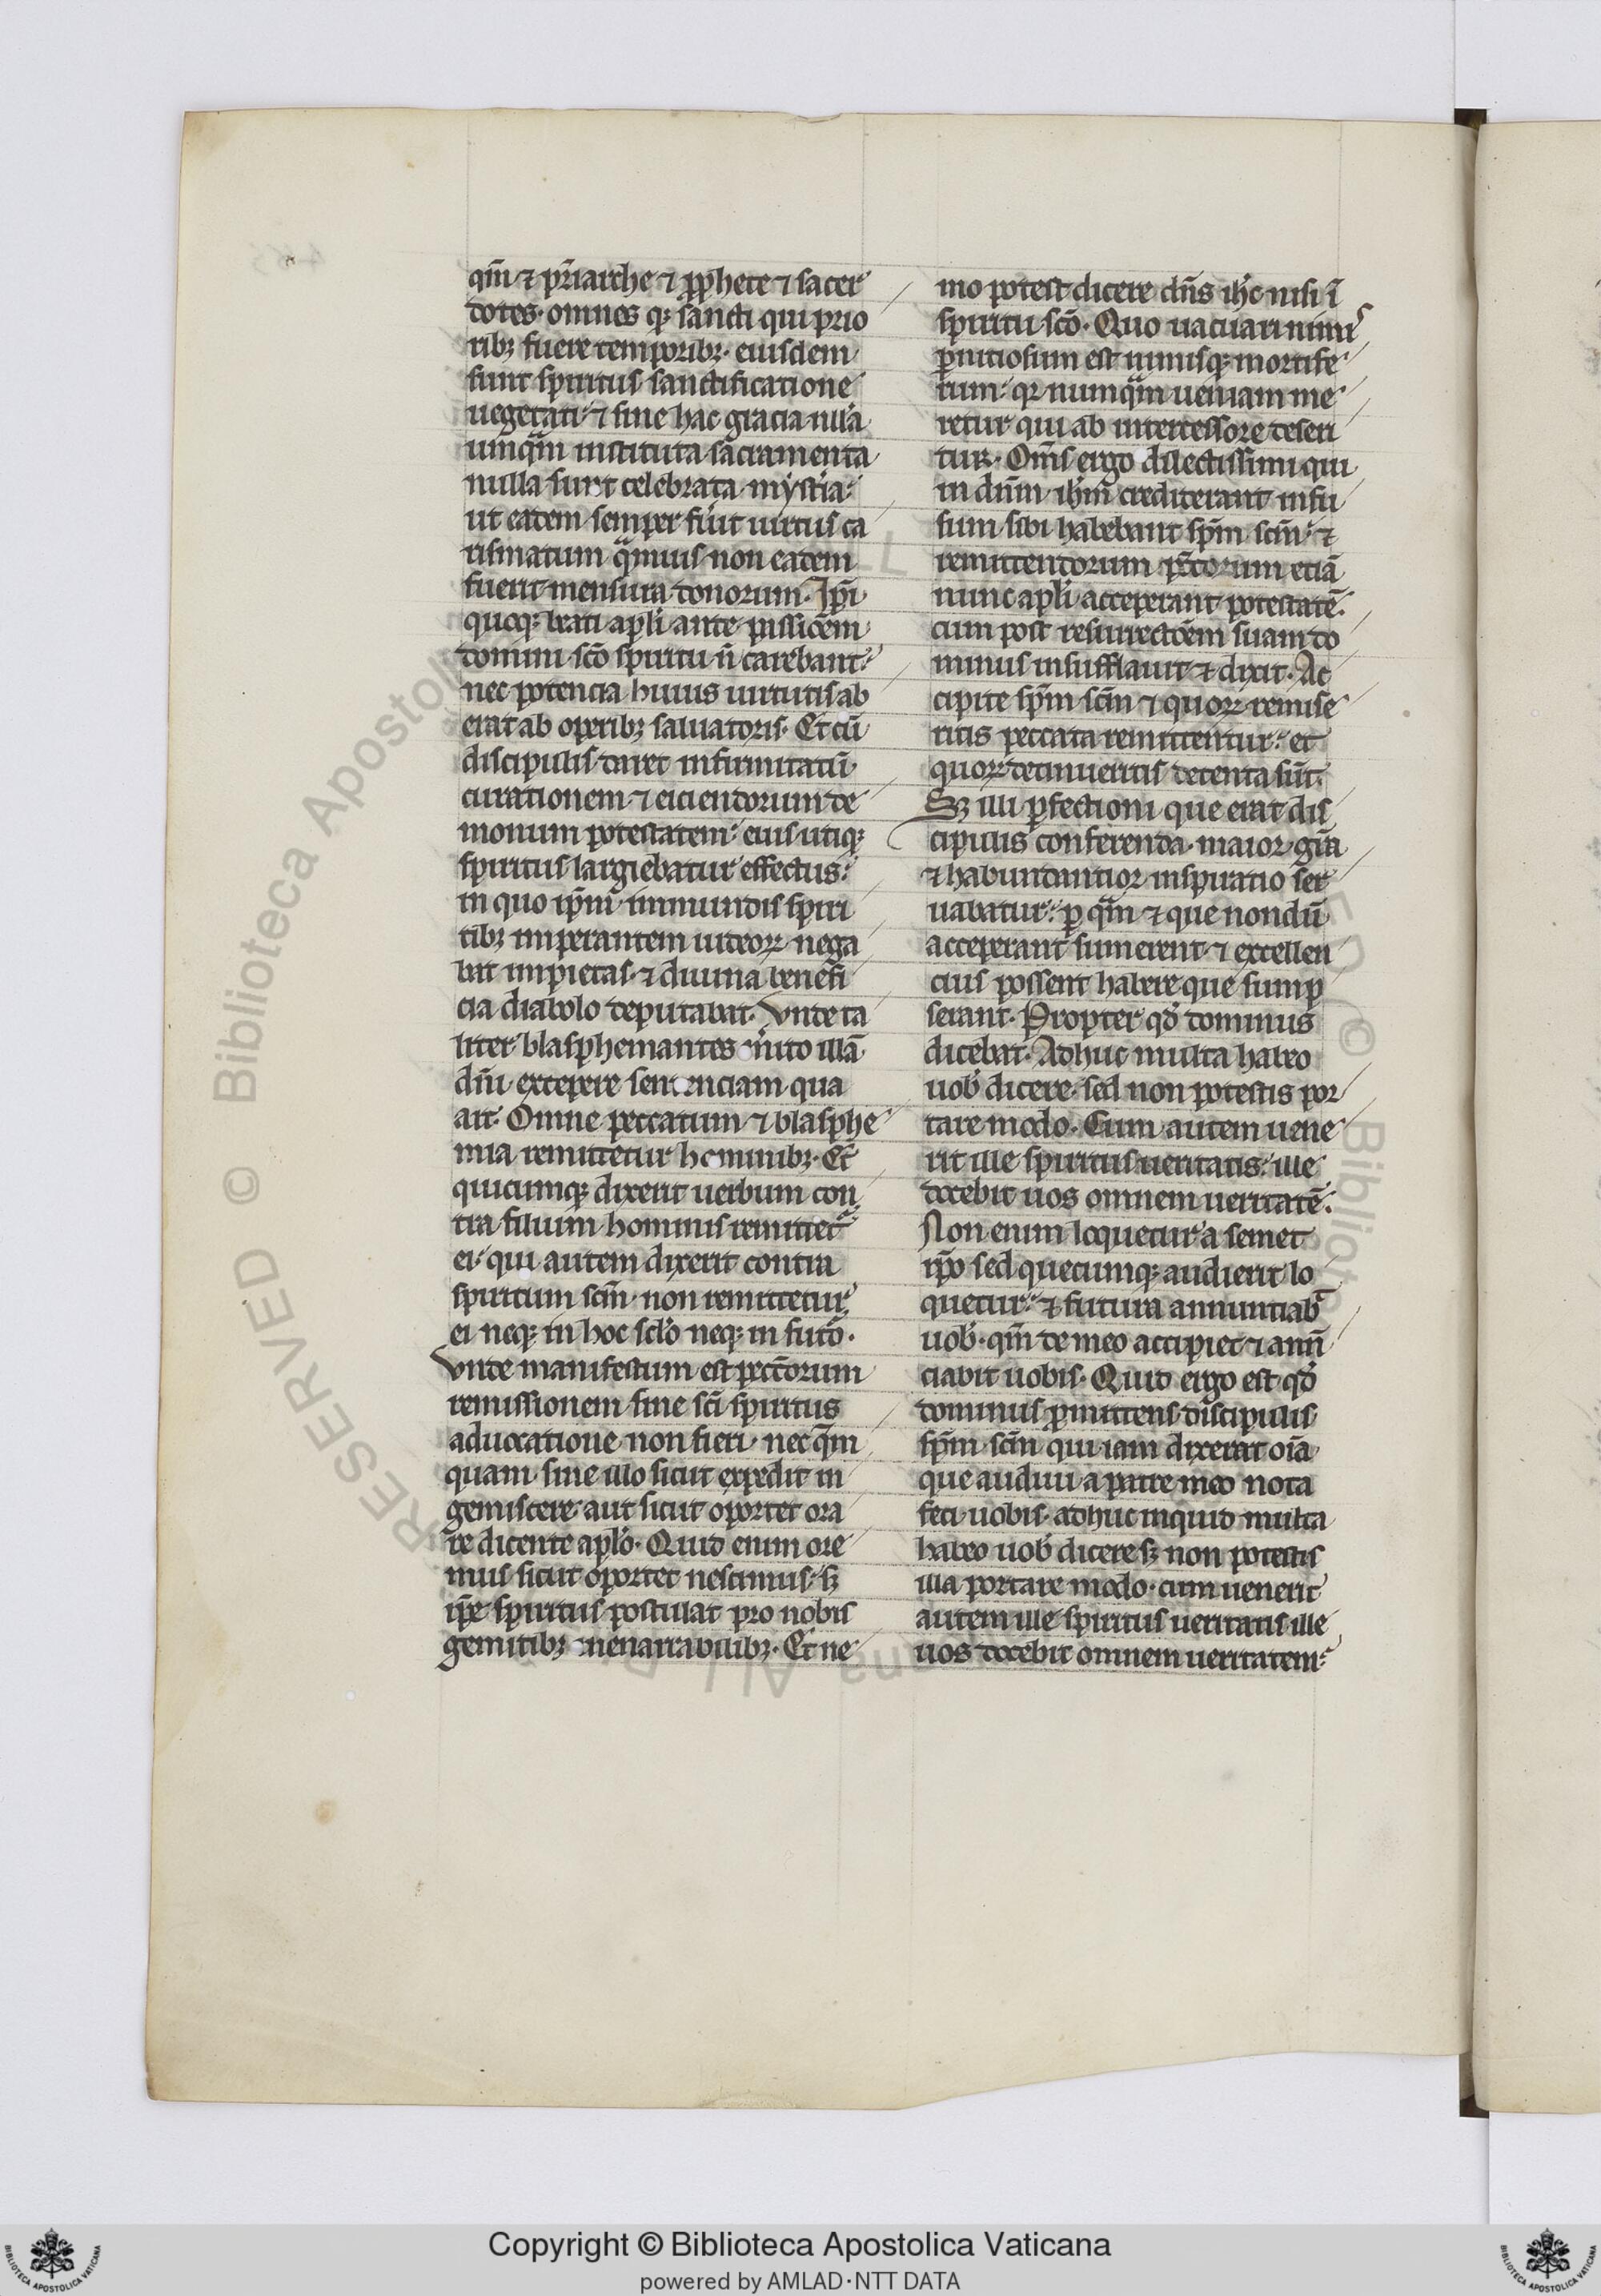 qm̄ ⁊ pr̄iarche ⁊ ꝓphete ⁊ sacer
dotes· omnes qꝫ sancti qui prio
ribꝫ fuere temporibꝫ· eiusdem
sunt spiritus sanctificatione
uegetati· ⁊ sine hac gracia nulla
umqᵃm instituta sacramenta
nulla sunt celebrata mẏstia·
ut eadem semper fu̇it uirtus ca
rismatum qᵃmuis non eadem
fuerit mensura donorum· Ip̄i
quoqꝫ beati apl̓i ante passiōēm
domini sc̄o spiritu n̄ carebant·
nec potencia huius uirtutis ab
erat ab operibꝫ saluatoris· Et cū
discipulis daret infirmitatū
curationem ⁊ eiciendorum de
monum potestatem· eius utiqꝫ
spiritus largiebatur effectus·
in quo ip̄m inmundis spiri
tibꝫ imperantem iudeoꝝ nega
bat impietas· ⁊ diuina benefi
cia diabolo deputabat· Vnde ta
liter blasphemantes m̓ito illā
dn̄i excepere sentenciam qua
ait· Omne peccatum ⁊ blasphe
mia remittetur hominibꝫ· Et
quicumqꝫ dixerit uerbum con
tra filium hominis remittet᷑
ei· qui autem dixerit contra
spiritum sc̄m· non remittetur
ei neqꝫ in hoc scl̓o neqꝫ in fut̓o·
Vnde manifestum est pecc̄orum
remissionem sine sc̄i spiritus
aduocatione non fieri· nec qᵃm
quam sine illo sicut expedit in
gemiscere aut sicut oportet ora
re dicente apl̓o· Quid enim ore
mus sicut oportet nescimus· sꝫ
ip̄e spiritus postulat pro nobis
gemitibꝫ inenarrabilibꝫ· Et ne
mo potest dicere dn̄s ih̓c nisi ī
spiritu sc̄o· Quo uacuari nimis
ꝑnitiosum est nimisqꝫ mortife
rum· qꝛ numqᵃm ueniam me
retur qui ab intercessore deseri
tur· Om̄s ergo dilectissimi qui
in dn̄m ih̓m crediderant infu
sum sibi habebant sp̄m sc̄m· ⁊
remittendorum pc̄torum etiā
nunc apl̓i acceperant potestatē·
cum post resurrectōēm suam do
minus insufflauit ⁊ dixit· Ac
cipite sp̄m sc̄m ⁊ quoꝝ remise
ritis peccata remittentur· et
quoꝝ detinueritis detenta sūt·
Sꝫ illi ꝑfectioni que erat dis
cipulis conferenda· maior gr̄a
⁊ habundantior inspiratio ser
uabatur· ꝑ qᵃm ⁊ que nondū
acceperant sumerent· ⁊ excellen
cius possent habere que sump
serant· Propter qd̓ dominus
dicebat· Adhuc multa habeo
uob̓ dicere· sed non potestis por
tare modo· Cum autem uene
rit ille spiritus ueritatis· ille
docebit uos omnem ueritatē·
Non enim loquetur a semet
ip̄o sed quecumqꝫ audierit lo
quetur· ⁊ futura annuntiabᵗ
uob̓· qm̄ de meo accipiet ⁊ ann̄
ciabit uobis· Quid ergo est qd̓
dominus ꝓmittens discipulis
sp̄m sc̄m qui iam dixerat oīa
que audiui a patre meo nota
feci uobis· adhuc inquid multa
habeo uob̓ dicere sꝫ non potestis
illa portare modo· cum uenerit
autem ille spiritus ueritatis ille
uos docebit omnem ueritatem·
© Biblioteca Apostolica Vaticana ALL RIGHTS RESERVED
Copyright © Biblioteca Apostolica Vaticana
powered by AMLAD·NTT DATA